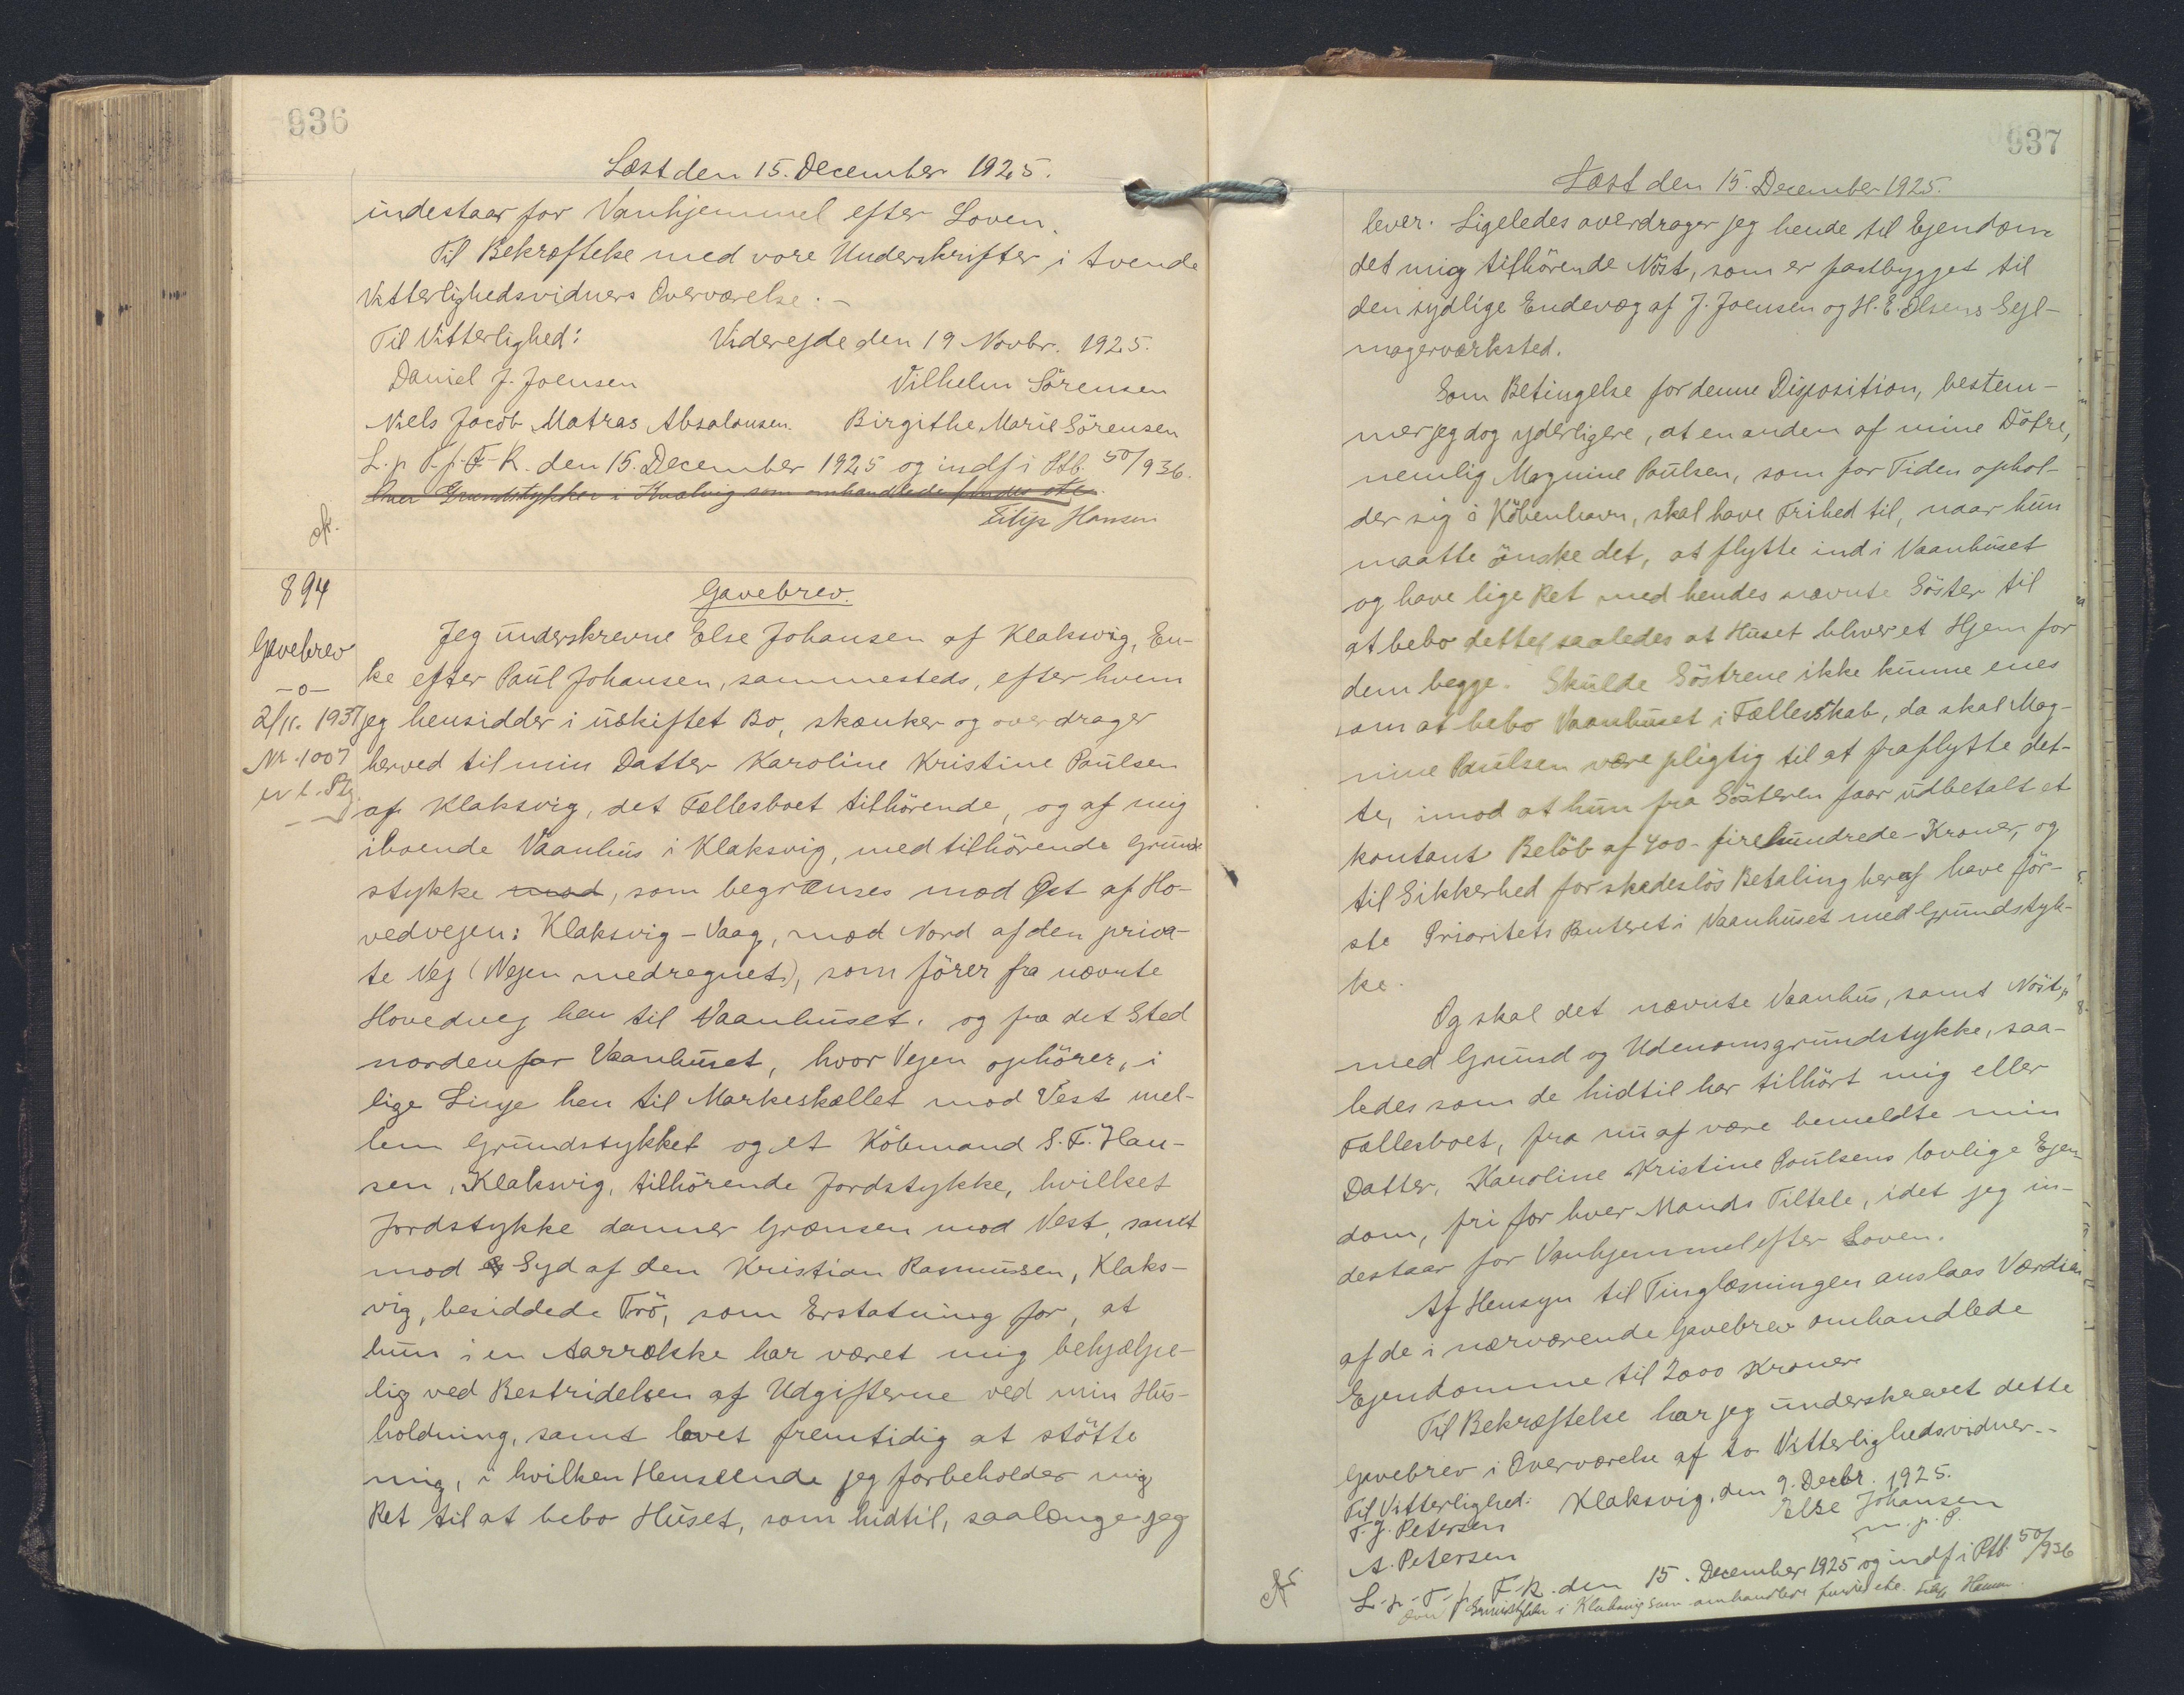 936
Læst den 15. December 1925.
indestaar for Vanhjemmel efter Loven.
Til Bekræftelse med vore Underskrifter i tvende
Vitterlighedsvidners Overværelse. -
Til Vitterlighed: Viderejde den 19 Novbr. 1925.
Daniel J. Joensen Vilhelm Sörensen
Niels Jacob Matras Absalonsen. Birgithe Marie Sörensen
L. p. T. f. F. R. den 15. December 1925 og indf i Ptb. 50/936.
Over Grundstykker i som omhandlede findes ete.
Filip Hansen
afr.
894
Gavebrev
-o-
2/11. 1937
Nr. 1007
Gavebrev.
Jeg underskrevne Else Johansen af Klaksvig, En-
ke efter Paul Johansen, sammesteds, efter hvem
jeg hensidder i uskiftet Bo, skænker og overdrager
herved til min Datter Karoline Kristine Paulsen
af Klaksvig, det Fællesboet tilhörende, og af mig
iboende Vaanhus i Klaksvig, med tilhörende Grund-
stykke mod, som begrænses mod Øst af Ho-
vedvejen: Klaksvig - Vaag, mod Nord af den priva-
te Vej (Vejen medregnet), som förer fra nævnte
Hovedvej hen til Vaanhuset. og fra det Sted
nordenfor Vaanhuset, hvor Vejen ophörer, i
lige Linje hen til Markeskellet mod Vest mel-
lem Grundstykket og et Köbmand S. F. Han-
sen, Klaksvig, tilhörende Jordstykke, hvilket
Jordstykke danner Grænsen mod Vest, samt
mod Syd af den Kristian Rasmussen, Klaks-
vig, besiddede Trö, som Erstatning for, at
hun i en Aarrække har været mig behjælpe-
lig ved Bestridelsen af Udgifterne ved min Hus-
holdning, samt lovet fremtidig at stötte
mig, i hvilken Henseende jeg forbeholder mig
Ret til at bebo Huset, som hidtil, saalænge jeg
937
Læst den 15. December 1925.
lever. Ligeledes overdrager jeg hende til Ejendom
det mig tilhörende Nöst, som er fastbygget til
den sydlige Endevæg af J. Joensen og H. E. Olsens Sejl-
magerværksted.
Som Betingelse for denne Disposition, bestem-
mer jeg dog yderligere, at en anden af mine Dötre,
nemlig Magnine Paulsen, som for Tiden ophol-
der sig i Köbenhavn, skal have Frihed til, naar hun
maatte önske det, at flytte ind i Vaanhuset
og have lige Ret med hendes nævnte Söster til
at bebo dette, saaledes at Huset bliver et Hjem for
dem begge. Skulde Söstrene ikke kunne enes
om at bebo Vaanhuset i Fællesskab, da skal Mag-
nine Paulsen være pligtig til at fraflytte det-
te, imod at hun fra Sösteren faar udbetalt et
kontant Belöb af 400- firehundrede - Kroner, og
til Sikkerhed for skadeslös Betaling heraf have för-
ste Prioritets Panteret i Vaanhuset med Grundstyk-
ke.
Og skal det nævnte Vaanhus, samt Nöst,
med Grund og Udenomsgrundstykke, saa-
ledes som de hidtil har tilhört mig eller
Fællesboet, fra nu af være bemeldte min
Datter, Karoline Kristine Paulsens lovlige Ejen-
dom, fri for hver Mands Tiltale, idet jeg in-
destaar for Vanhjemmel efter Loven.
Af Hensyn til Tinglæsningen anslaas Værdien
af de i nærværende Gavebrev omhandlede
Ejendomme til 2000 Kroner.
Til Bekræftelse har jeg underskrevet dette
Gavebrev i Overværelse af to Vitterlighedsvidner. -
Til Vitterlighed: Klaksvig, den 9. Decbr. 1925.
T. J. Petersen Else Johansen
m. p. P.
A. Petersen
L. p. T. f. F. R. den 15. December 1925 og indf i Ptb. 50/936
Over Grundstykker i Klaksvig som omhandlede findes ete. Filip Hansen.